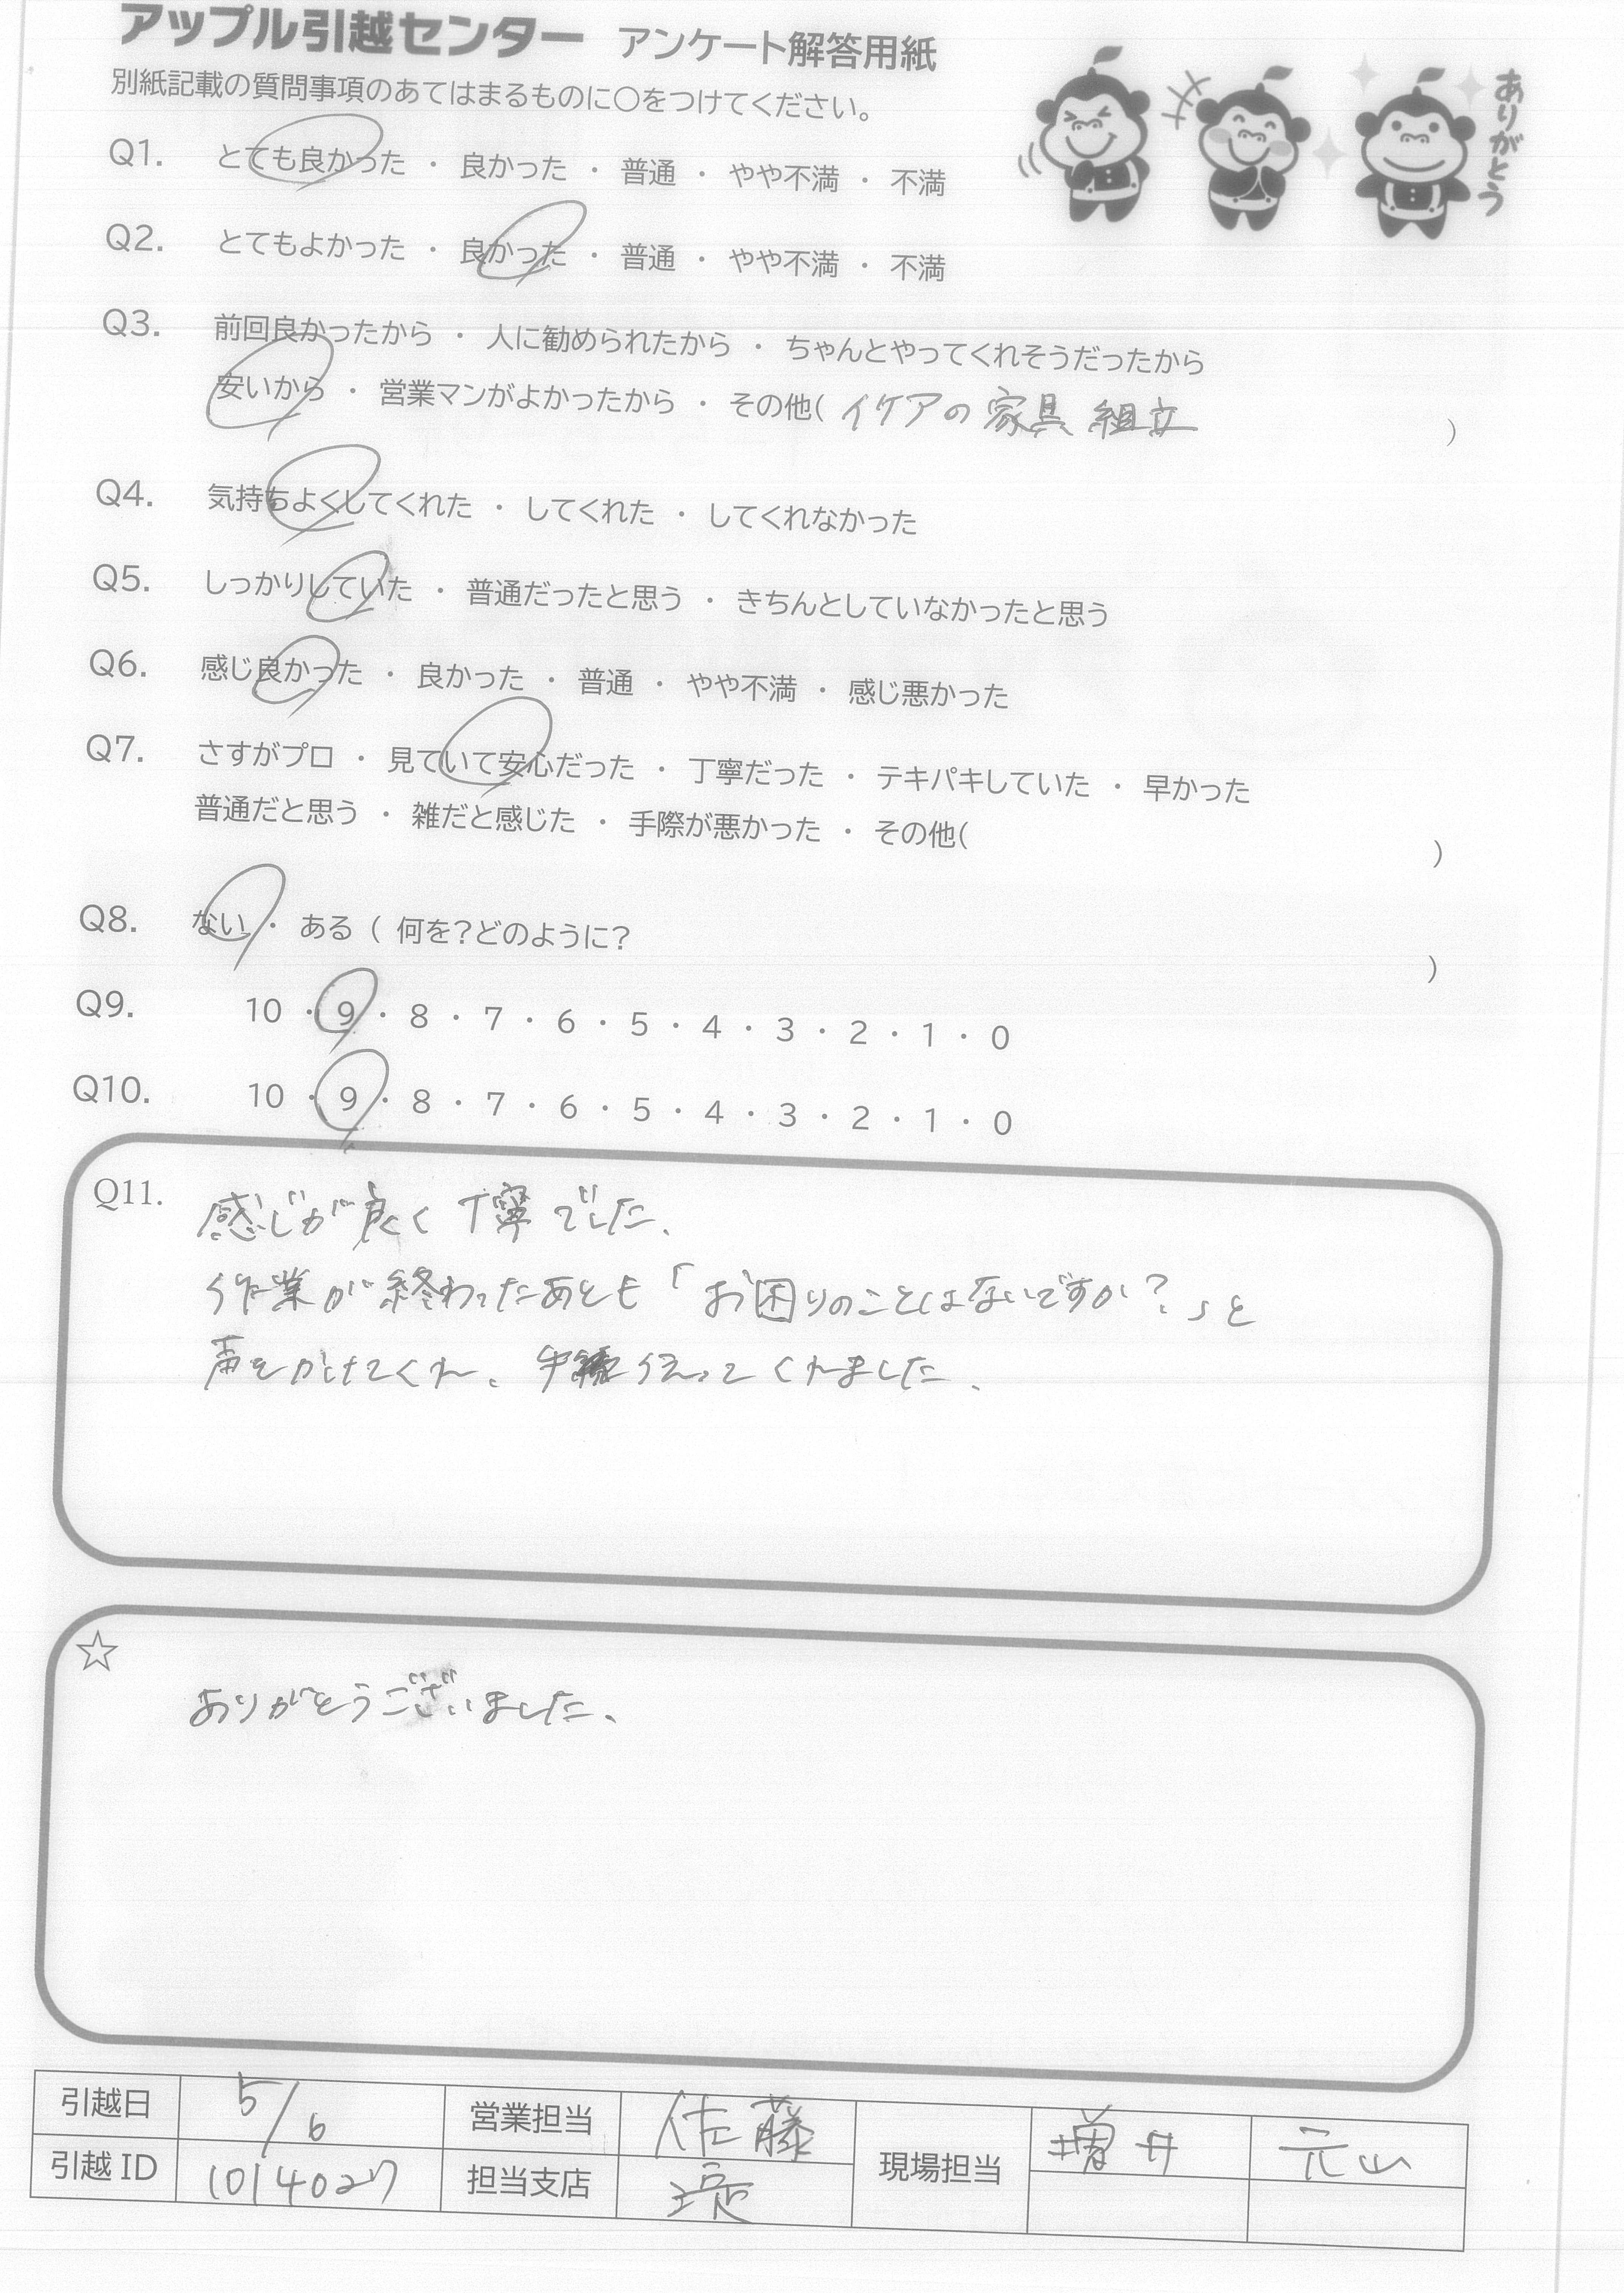 アップル引越センター アンケート解答用紙
別紙記載の質問事項のあてはまるものに○をつけてください。
ありがとう
Q1. とても良かった ・ 良かった ・ 普通 ・ やや不満 ・ 不満
Q2. とてもよかった ・ 良かった ・ 普通 ・ やや不満 ・ 不満
Q3. 前回良かったから ・ 人に勧められたから ・ ちゃんとやってくれそうだったから
安いから ・ 営業マンがよかったから ・ その他( イケアの家具 組立 )
Q4. 気持ちよくしてくれた ・ してくれた ・ してくれなかった
Q5. しっかりしていた ・ 普通だったと思う ・ きちんとしていなかったと思う
Q6. 感じ良かった ・ 良かった ・ 普通 ・ やや不満 ・ 感じ悪かった
Q7. さすがプロ ・ 見ていて安心だった ・ 丁寧だった ・ テキパキしていた ・ 早かった
普通だと思う ・ 雑だと感じた ・ 手際が悪かった ・ その他( )
Q8. ない ・ ある ( 何を?どのように? )
Q9. 10 ・ 9 ・ 8 ・ 7 ・ 6 ・ 5 ・ 4 ・ 3 ・ 2 ・ 1 ・ 0
Q10. 10 ・ 9 ・ 8 ・ 7 ・ 6 ・ 5 ・ 4 ・ 3 ・ 2 ・ 1 ・ 0
Q11. 感じが良く丁寧でした、
作業が終わったあとも「お困りのことはないですか?」と
声をかけてくれ、手伝ってくれました、
☆
ありがとうございました、
引越日 5/6 営業担当 佐藤 現場担当 増井 元山
引越 ID 1014027 担当支店